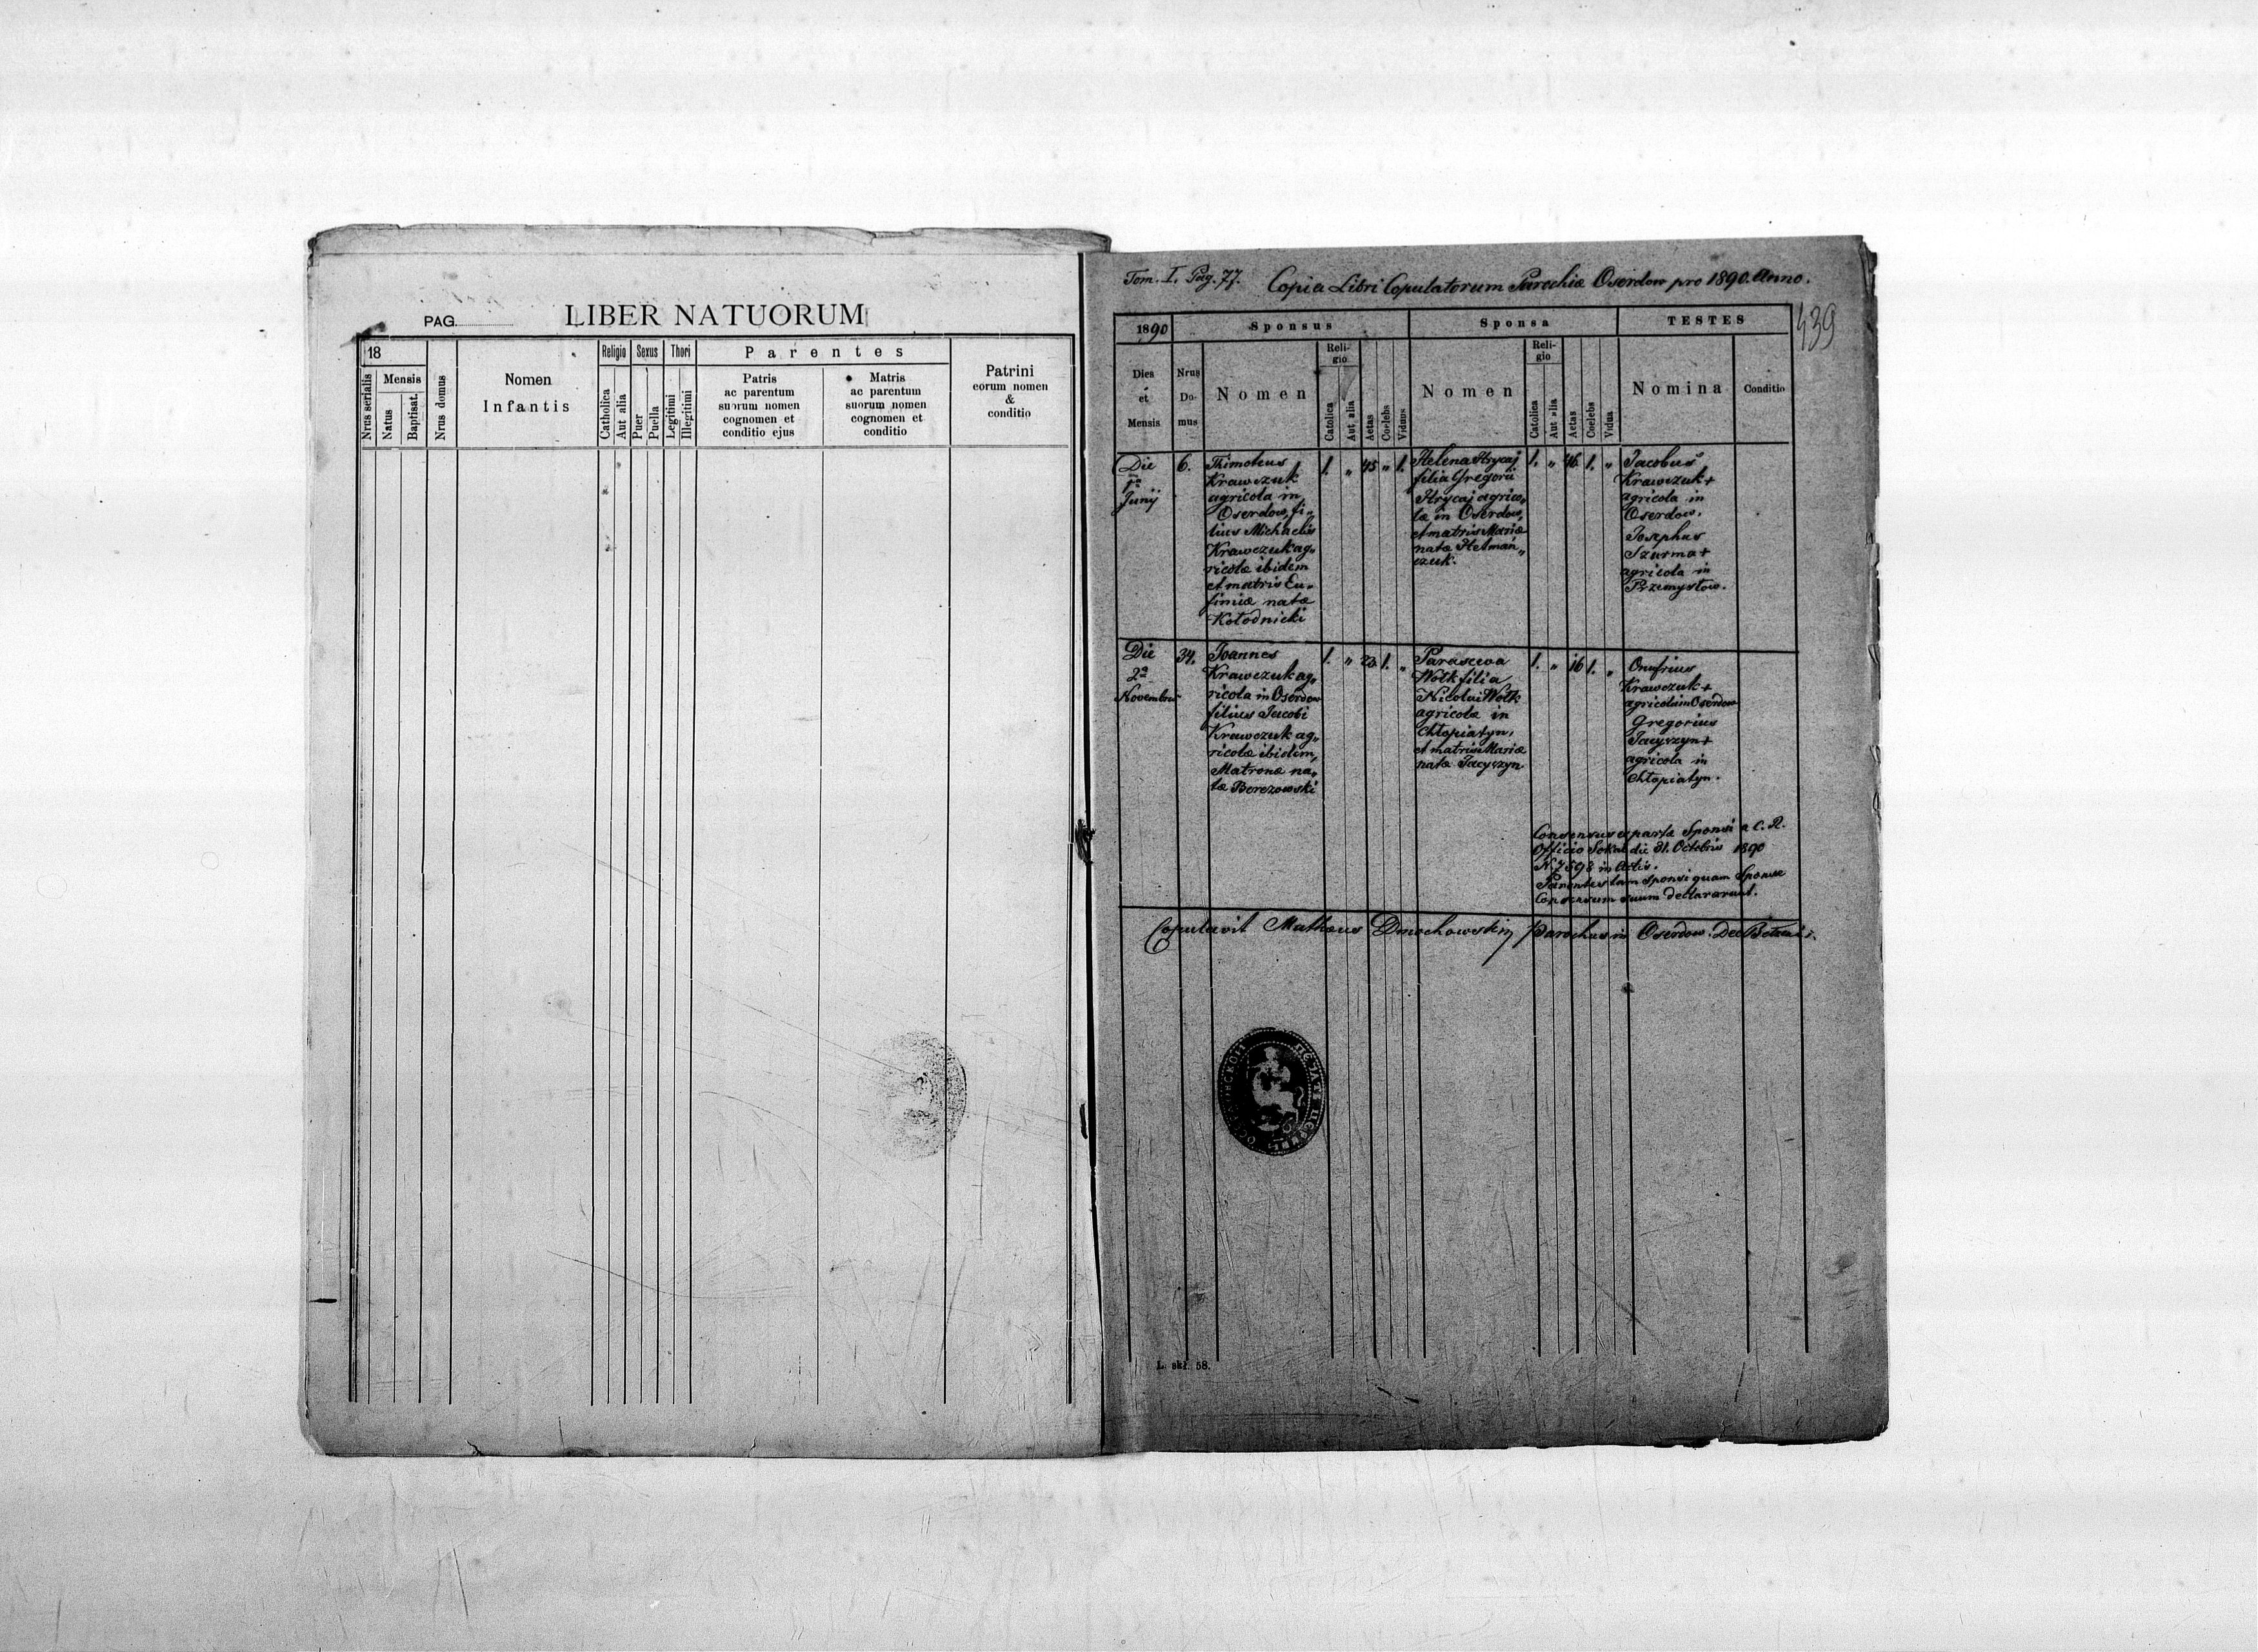 PAG. LIBER NATUORUM
18
Nrus serialis
Mensis
Natus
Baptisat.
Nrus domus
Nomen
Infantis
Religio
Catholica
Aut alia
Sexus
Puer
Puella
Thori
Legitimi
Illegitimi
Parentes
Patris
ac parentum
suorum nomen
cognomen et
conditio ejus
Matris
ac parentum
suorum nomen
cognomen et
conditio
Patrini
eorum nomen
&
conditio
Tom. I. Pag. 77. Copia Libri Copulatorum Parochiæ Oserdow pro 1890. Anno.
439
1890
Sponsus
Sponsa
TESTES
Dies
et
Mensis
Nrus
Do-
mus
Nomen
Reli-
gio
Catolica
Aut alia
Aetas
Coelebs
Viduus
Nomen
Reli-
gio
Catolica
Aut alia
Aetas
Coelebs
Vidua
Nomina
Conditio
Die
1ª
Junij
6.
Thimoteus
Krawczuk
agricola in
Oserdow, fi„
lius Michaelis
Krawczuk ag„
ricolæ ibidem
et matris Eu„
fimiæ natæ
Kołodnicki
1. „ 45 „ 1.
Helena Strycaj
filia Gregorii
Strycaj agrico„
læ in Oserdow,
et matris Mariæ
natæ Hetman„
czuk.
1. „ 46 1. „
Jacobus
Krawczuk +
agricola in
Oserdow.
Josephus
Szurma +
agricola in
Przemysłow.
Die
2ª
Novembris
34.
Joannes
Krawczuk ag„
ricola in Oserdow
filius Jacobi
Krawczuk ag„
ricolæ ibidem,
Matronæ na„
tæ Berezowski
1. „ 23 1. „
Parascева
Wołk filia
Nicolai Wołk
agricolæ in
Chłopiatyn,
et matris Mariæ
natæ Jacyszyn
1. „ 16 1. „
Onufrius
Krawczuk +
agricola in Oserdow
Gregorius
Jacyszyn +
agricola in
Chłopiatyn.
Consensus ex parte Sponsi a C. R.
Officio Sokal die 31. Octobris 1890
N. 7598 in Actis.
Parentes tam Sponsi quam Sponsæ
Consensum suum declararunt.
Copulavit Matheus Dmochowskij Parochus in Oserdow. Dec
ПЕЧАТЬ ЦЕРКВИ
L. skł. 58.